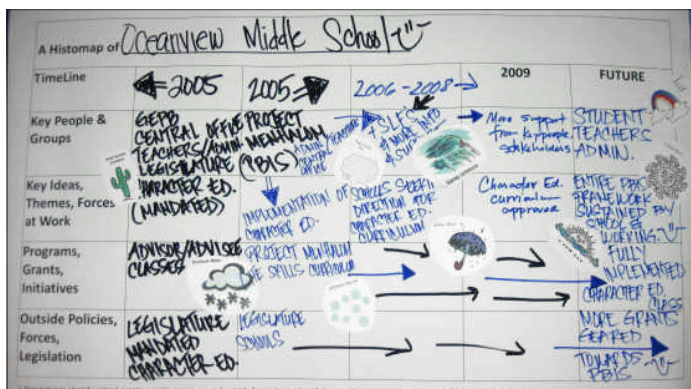 A Histomap of Oceanview Middle School
TimeLine
2005
2005
2006-2008
2009
FUTURE
Key People &
Groups
GEPB
CENTRAL OFFICE
TEACHERS/ADMIN
LEGISLATURE
PROJECT
MENTALUM
(PBIS)
ADMIN
CENTRAL
OFFICE
More support
from key people,
stakeholders
STUDENT
TEACHERS
ADMIN.
Key Ideas,
Themes, Forces
at Work
CHARACTER ED.
(MANDATED)
IMPLEMENTATION OF
CHARACTER ED.
SCHOOLS
DIRECTION FOR
CHARACTER ED.
CURRICULUM
Character Ed.
curriculum
approved
ENTIRE PBIS
FRAMEWORK
SUSTAINED BY
SCHOOL &
WORKING.
Programs,
Grants,
Initiatives
ADVISOR/ADVISEE
CLASSES
PROJECT MENTALUM
SKILLS CURRICULUM
FULLY
IMPLEMENTED
CHARACTER ED.
CLASS
Outside Policies,
Forces,
Legislation
LEGISLATURE
MANDATED
CHARACTER ED.
LEGISLATURE
SCHOOLS
MORE GRANTS
GEARED
TOWARDS
PBIS